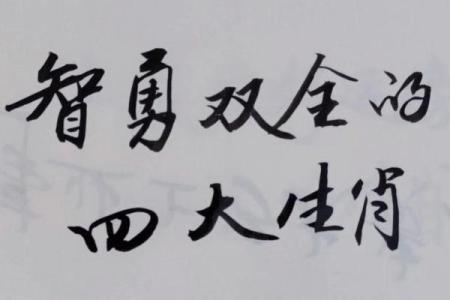 智勇双全的
四大生肖